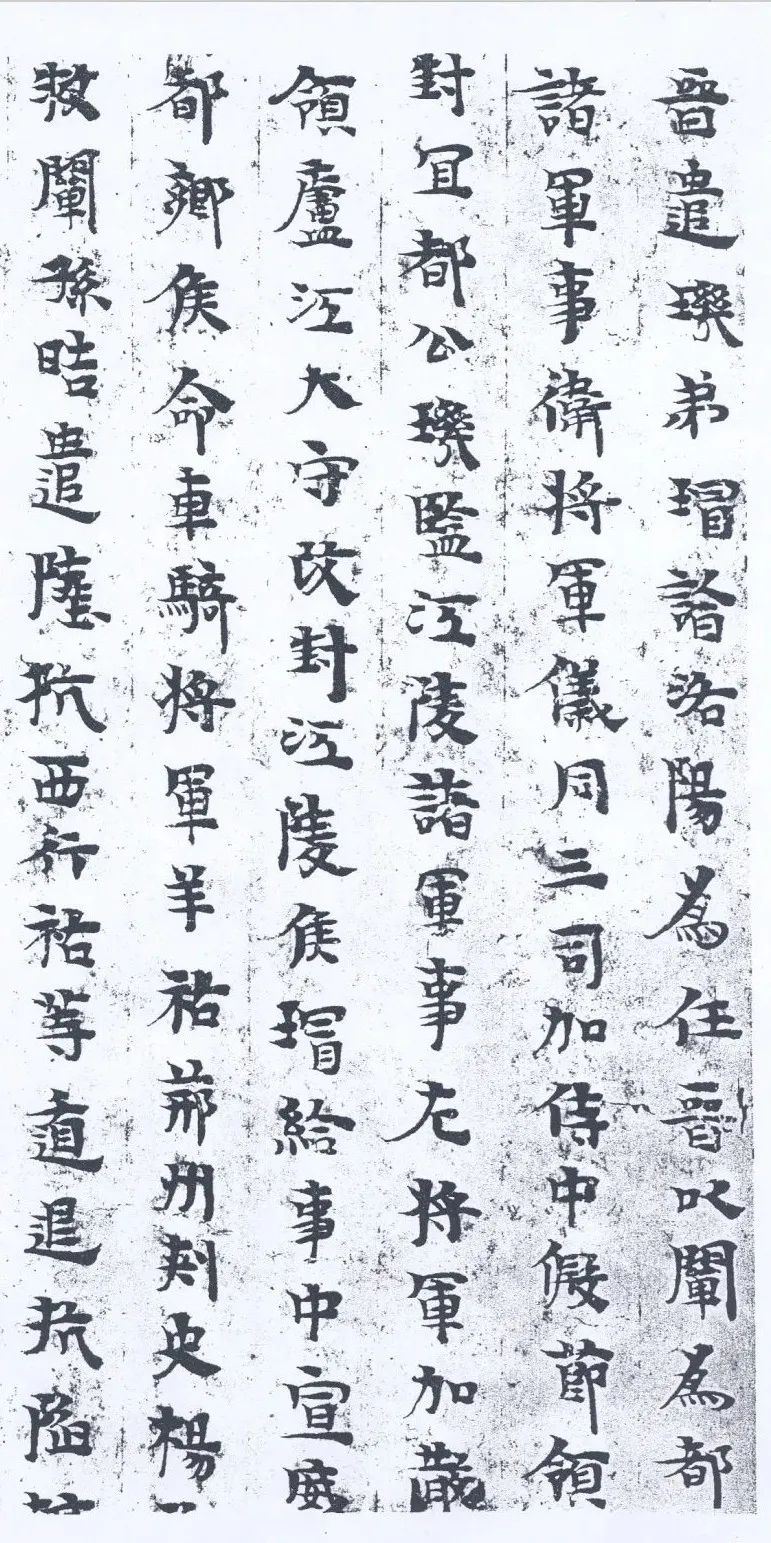 晉遣璣弟瑁詣洛陽為任晉以闡為都
諸軍事衛將軍儀同三司加侍中假節領
封冝都公璣監江陵諸軍事左將軍加散
領盧江大守改封江陵侯瑁給事中宣威
都鄉侯命車騎將軍羊祜荊州刺史楊
救闡孫晧遣陸抗西行祜等遁退抗陷